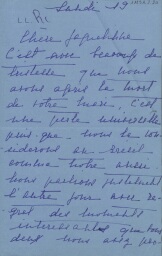 Lundi 19
Chère Jacqueline
C'est avec beaucoup de
tristesse que nous
avons appris la mort
de votre mère, c'est
une perte universelle
plus que nous la con
sidérons en
comme notre aussi
nous parlions justement
l'autre jour avec re-
gret des moments
intéressants que tous
deux nous avez